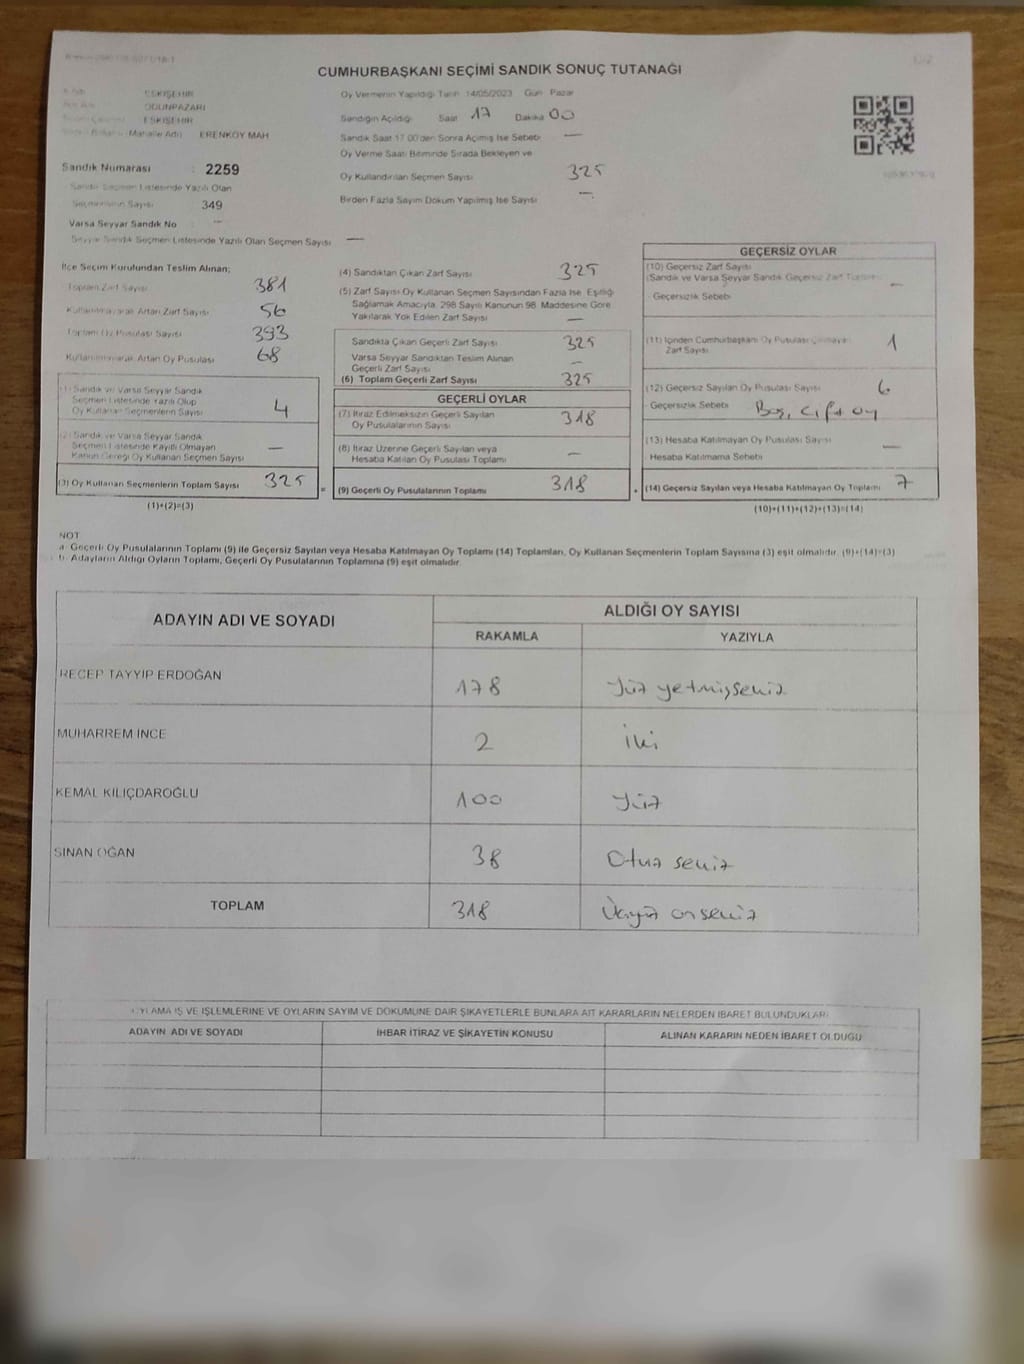 CUMHURBAŞKANI SEÇİMİ SANDIK SONUÇ TUTANAĞI
ESKİŞEHİR
ODUNPAZARI
ESKİŞEHİR
Mahalle Adı ERENKÖY MAH
Sandık Numarası : 2259
Sandık Seçmen Listesinde Yazılı Olan
Seçmenlerin Sayısı 349
Varsa Seyyar Sandık No —
Seyyar Sandık Seçmen Listesinde Yazılı Olan Seçmen Sayısı —
Oy Vermenin Yapıldığı Tarih 14/05/2023 Gün Pazar
Sandığın Açıldığı Saat 17 Dakika 00
Sandık Saat 17.00'den Sonra Açılmış İse Sebebi —
Oy Verme Saati Bitiminde Sırada Bekleyen ve
Oy Kullandırılan Seçmen Sayısı 325
Birden Fazla Sayım Döküm Yapılmış İse Sayısı —
İlçe Seçim Kurulundan Teslim Alınan;
Toplam Zarf Sayısı 381
Kullanılmayarak Artan Zarf Sayısı 56
Toplam Oy Pusulası Sayısı 393
Kullanılmayarak Artan Oy Pusulası 68
(1) Sandık ve Varsa Seyyar Sandık
Seçmen Listesinde Yazılı Olup
Oy Kullanan Seçmenlerin Sayısı 4
(2) Sandık ve Varsa Seyyar Sandık
Seçmen Listesinde Kayıtlı Olmayan
Kanun Gereği Oy Kullanan Seçmen Sayısı —
(3) Oy Kullanan Seçmenlerin Toplam Sayısı 325
(1)+(2)=(3)
(4) Sandıktan Çıkan Zarf Sayısı 325
(5) Zarf Sayısı Oy Kullanan Seçmen Sayısından Fazla İse, Eşitliği
Sağlamak Amacıyla, 298 Sayılı Kanunun 98. Maddesine Göre
Yakılarak Yok Edilen Zarf Sayısı —
Sandıkta Çıkan Geçerli Zarf Sayısı 325
Varsa Seyyar Sandıktan Teslim Alınan
Geçerli Zarf Sayısı —
(6) Toplam Geçerli Zarf Sayısı 325
GEÇERLİ OYLAR
(7) İtiraz Edilmeksizin Geçerli Sayılan
Oy Pusulalarının Sayısı 318
(8) İtiraz Üzerine Geçerli Sayılan veya
Hesaba Katılan Oy Pusulası Toplamı —
= (9) Geçerli Oy Pusulalarının Toplamı 318
GEÇERSİZ OYLAR
(10) Geçersiz Zarf Sayısı
(Sandık ve Varsa Seyyar Sandık Geçersiz Zarf Toplamı) —
Geçersizlik Sebebi
(11) İçinden Cumhurbaşkanı Oy Pusulası Çıkmayan
Zarf Sayısı 1
(12) Geçersiz Sayılan Oy Pusulası Sayısı 6
Geçersizlik Sebebi Boş, Çift oy
(13) Hesaba Katılmayan Oy Pusulası Sayısı —
Hesaba Katılmama Sebebi
+ (14) Geçersiz Sayılan veya Hesaba Katılmayan Oy Toplamı 7
(10)+(11)+(12)+(13)=(14)
NOT
a- Geçerli Oy Pusulalarının Toplamı (9) ile Geçersiz Sayılan veya Hesaba Katılmayan Oy Toplamı (14) Toplamları, Oy Kullanan Seçmenlerin Toplam Sayısına (3) eşit olmalıdır. (9)+(14)=(3)
b- Adayların Aldığı Oyların Toplamı, Geçerli Oy Pusulalarının Toplamına (9) eşit olmalıdır.
ADAYIN ADI VE SOYADI
ALDIĞI OY SAYISI
RAKAMLA YAZIYLA
RECEP TAYYİP ERDOĞAN 178 Yüz yetmişsekiz
MUHARREM İNCE 2 iki
KEMAL KILIÇDAROĞLU 100 Yüz
SİNAN OĞAN 38 Otuz sekiz
TOPLAM 318 Üçyüz onsekiz
OYLAMA İŞ VE İŞLEMLERİNE VE OYLARIN SAYIM VE DÖKÜMÜNE DAİR ŞİKAYETLERLE BUNLARA AİT KARARLARIN NELERDEN İBARET BULUNDUKLARI
ADAYIN ADI VE SOYADI İHBAR İTİRAZ VE ŞİKAYETİN KONUSU ALINAN KARARIN NEDEN İBARET OLDUĞU